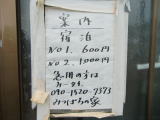 案内
宿泊
NO1. 600円
NO2. 1,000円
急用の方は
090-1520-7373
みつばちの家